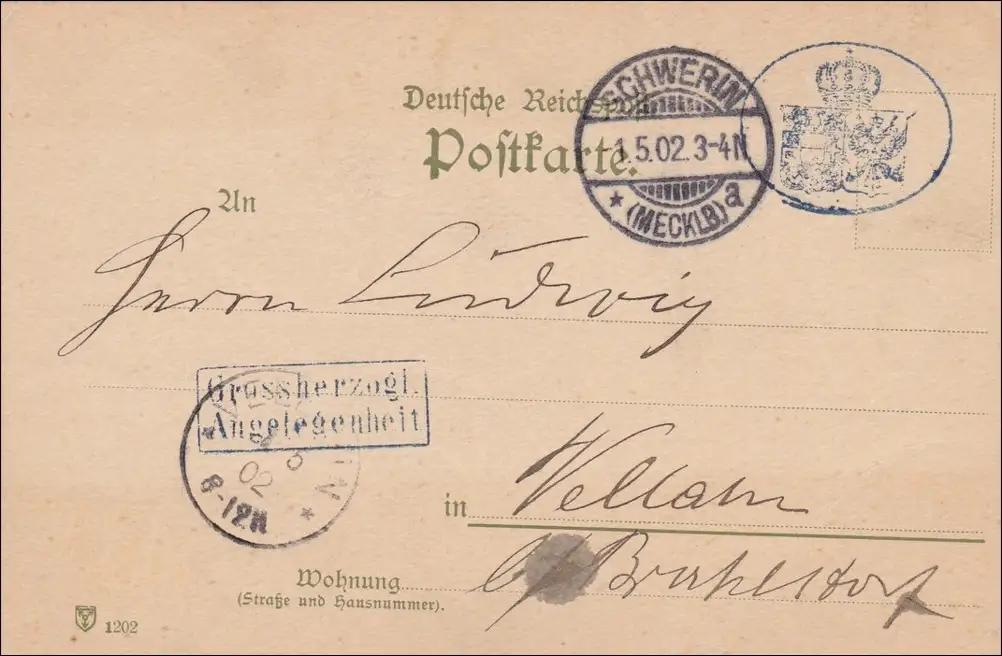 Deutsche Reichspost
Postkarte.
SCHWERIN
1.5.02. 3-4N
* (MECKLB.) a
An
Herrn Ludwig
Grossherzogl.
Angelegenheit
02
8-12N
in Vellahn
b/ Brahlstorf
Wohnung
(Straße und Hausnummer).
1202